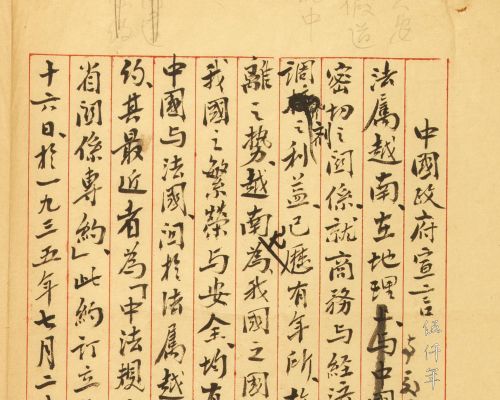 中國政府宣言
法屬越南、在地理上與中國
密切之関係、就商務與經濟
調劑之利益、已歷有年所、
離之勢、越南尤為我國之國
我國之繁榮與安全、均有
中國與法國、関於法屬越
約、其最近者為「中法規
省関係專約」、此約訂立
十六日、於一九三五年七月二
伍仟年